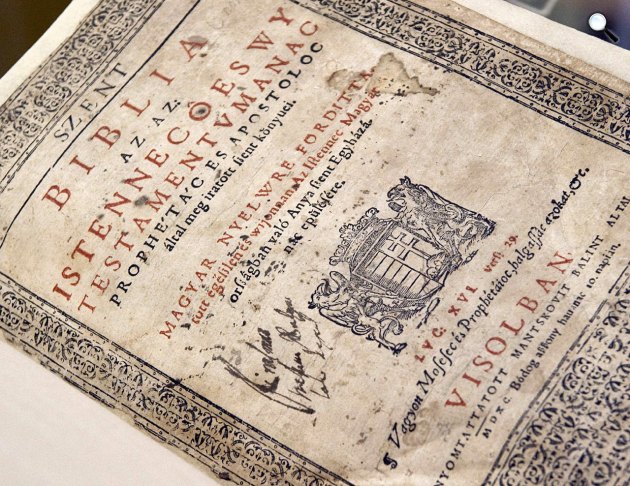 SZENT
BIBLIA
AZ AZ.
ISTENNECÔESWY
TESTAMENTVMANAC
PROPHETAC ES APOSTOLOC
által meg iratott ſzent könyuei.
MAGYAR NYELWRE FORDITTA
tott egéſzlen és wijonnan Az Iſtennec Magyar
orſzágban való Anya ſzent Egyházá-
nac epüléſére.
LVC. XVI verſ. 29.
¶ Vagyon Moſeſſec és Prophetáioc, halgaſſác azokat &c.
VISOLBAN
NYOMTATTATOTT MANTSKOVIT BALINT ALTAL
MDXC. Bódog aſſzony hauána